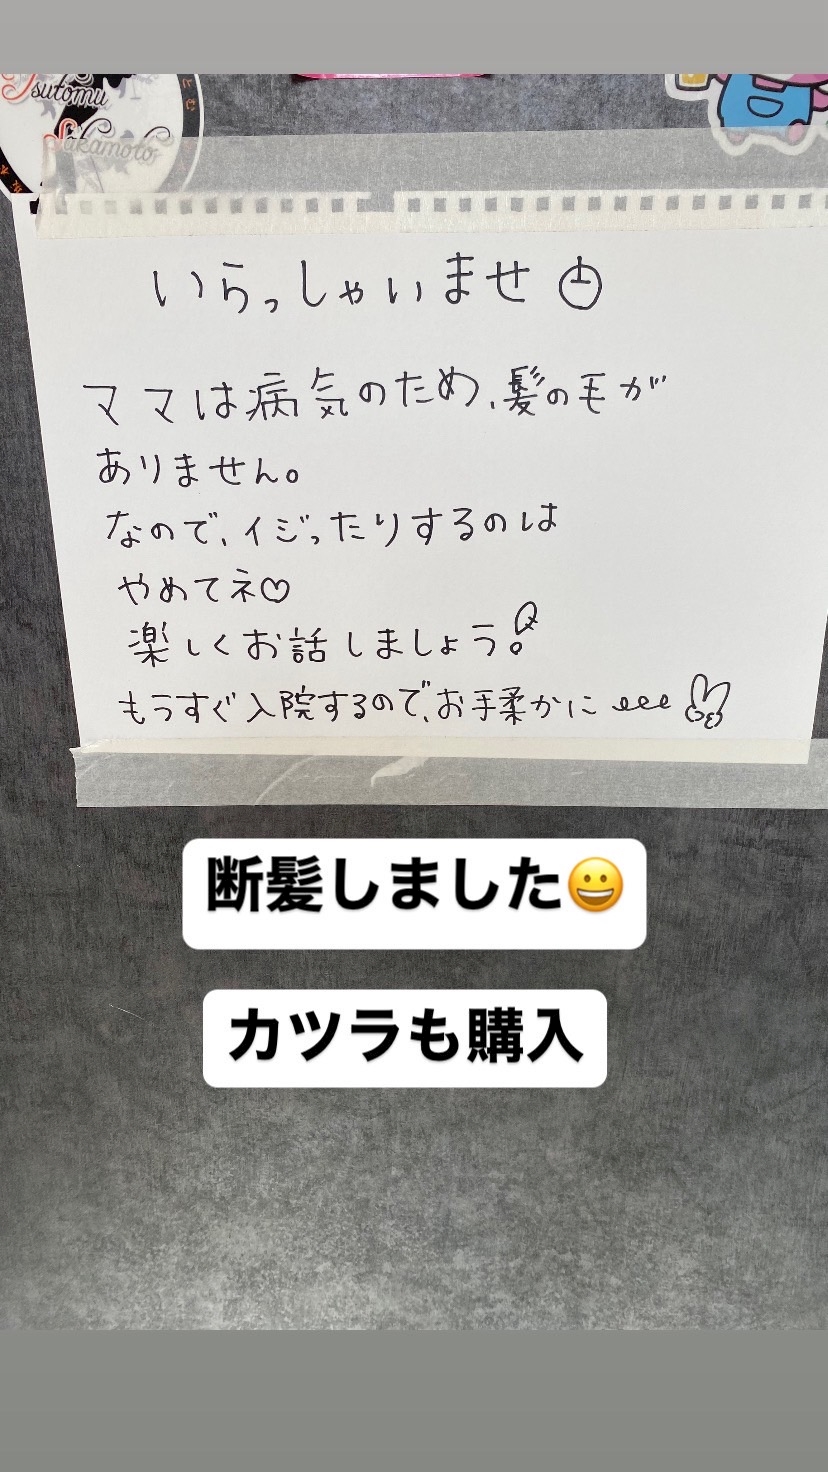 Tsutomu
Sakamoto
いらっしゃいませ
ママは病気のため、髪の毛が
ありません。
なので、イジったりするのは
やめてネ♡
楽しくお話しましょう!
もうすぐ入院するので、お手柔かに
断髪しました😀
カツラも購入